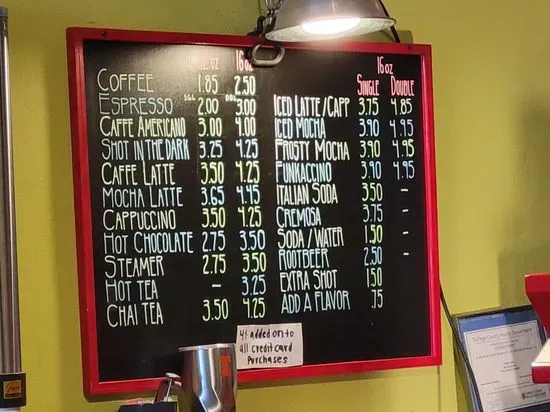 12 oz 16 oz
COFFEE 1.85 2.50
ESPRESSO SGL 2.00 DBL 3.00
CAFFE AMERICANO 3.00 4.00
SHOT IN THE DARK 3.25 4.25
CAFFE LATTE 3.50 4.25
MOCHA LATTE 3.65 4.45
CAPPUCCINO 3.50 4.25
HOT CHOCOLATE 2.75 3.50
STEAMER 2.75 3.50
HOT TEA - 3.25
CHAI TEA 3.50 4.25
16 oz
SINGLE DOUBLE
ICED LATTE/CAPP 3.75 4.85
ICED MOCHA 3.90 4.95
FROSTY MOCHA 3.90 4.95
FUNKACCINO 3.90 4.95
ITALIAN SODA 3.50 -
CREMOSA 3.75 -
SODA/WATER 1.50 -
ROOTBEER 2.50 -
EXTRA SHOT 1.50
ADD A FLAVOR .75
4% added on to
all credit card
purchases